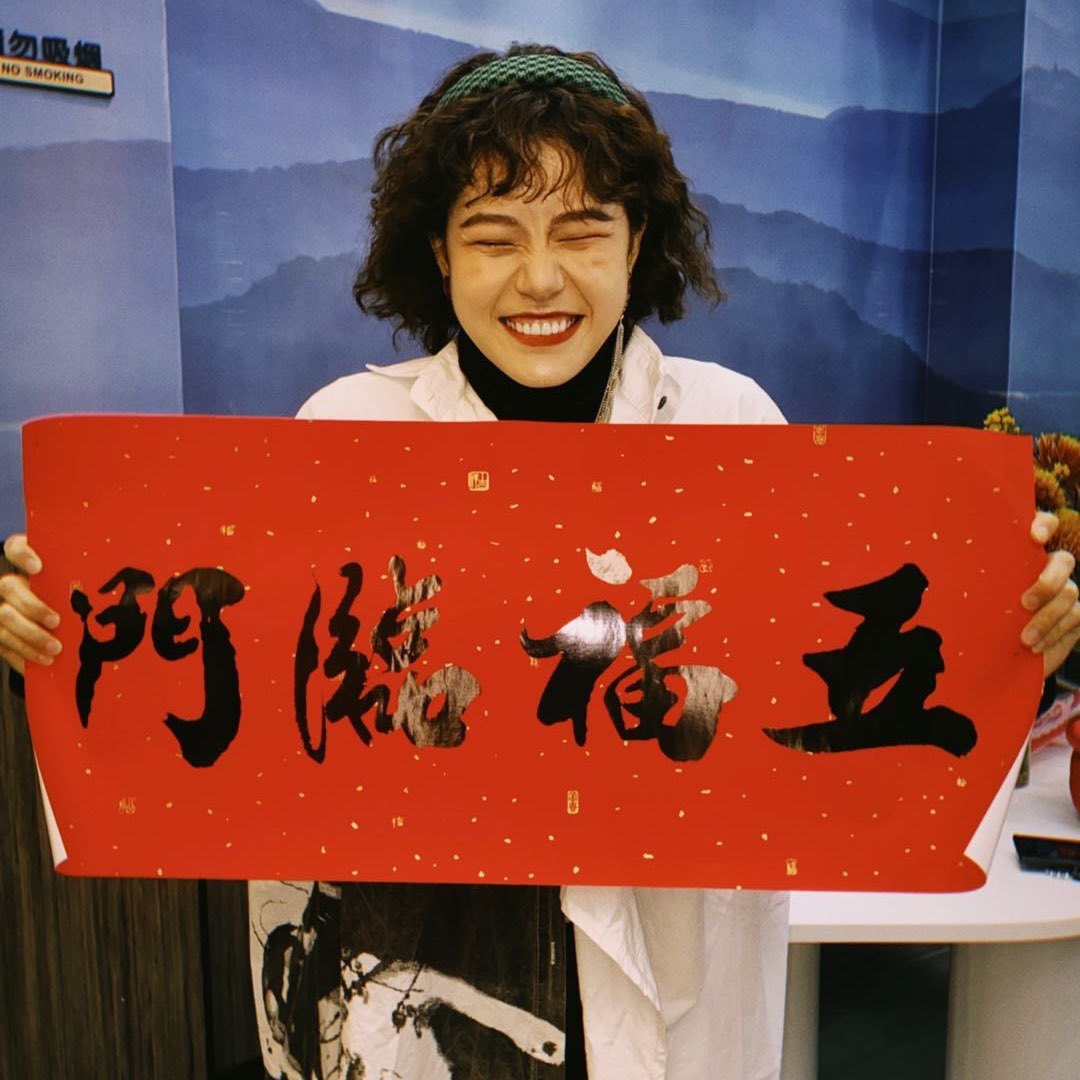 勿吸煙
NO SMOKING
五福臨門